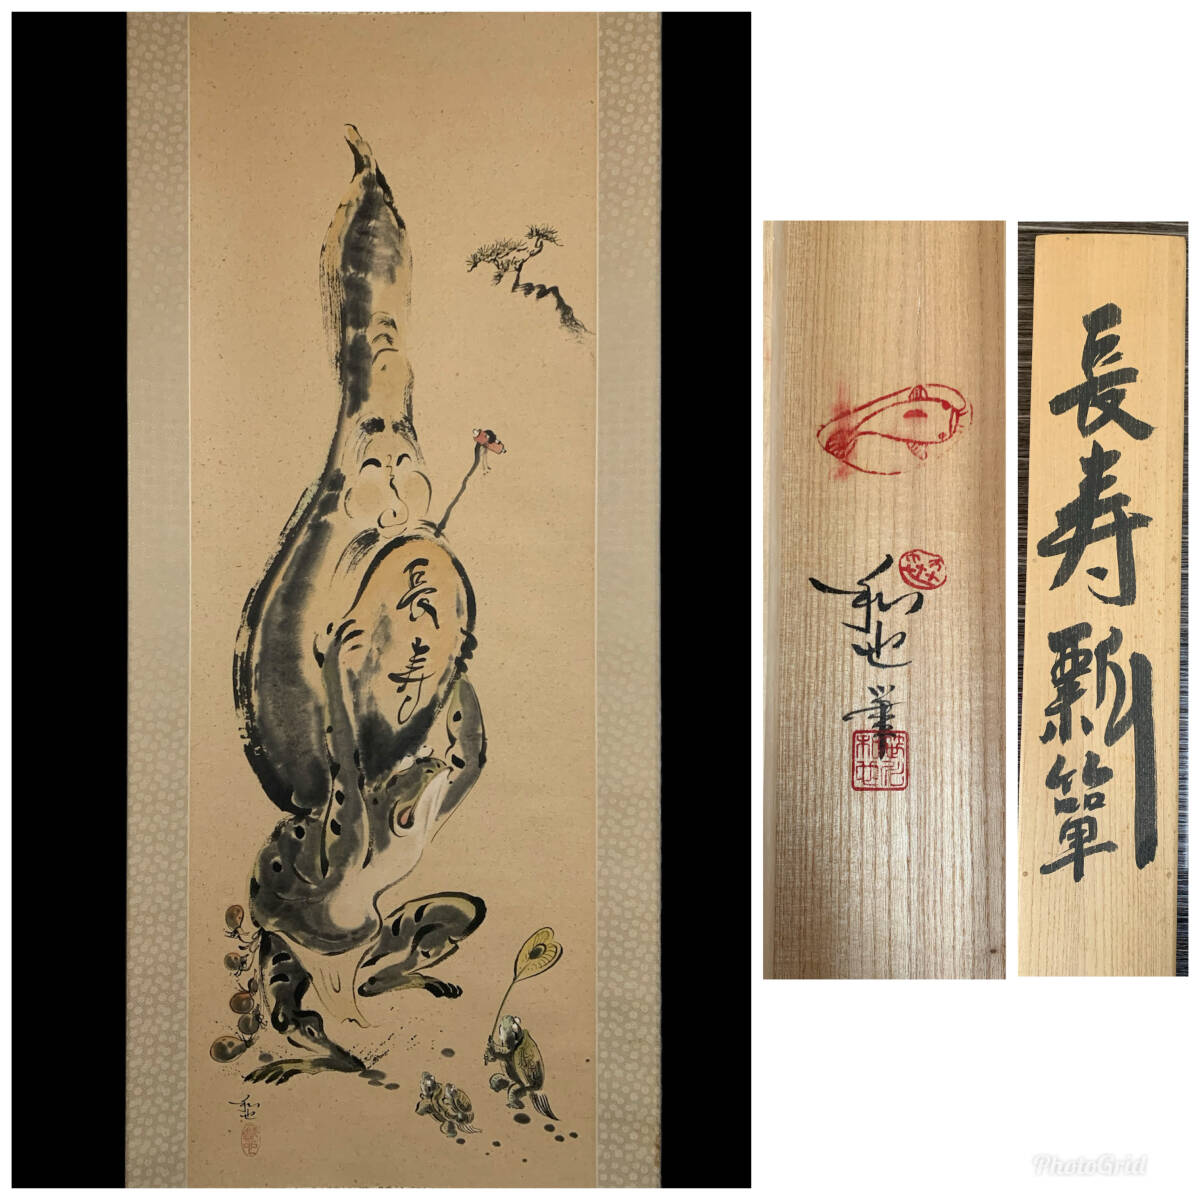 長寿
和也
和也筆
長寿瓢箪
PhotoGrid